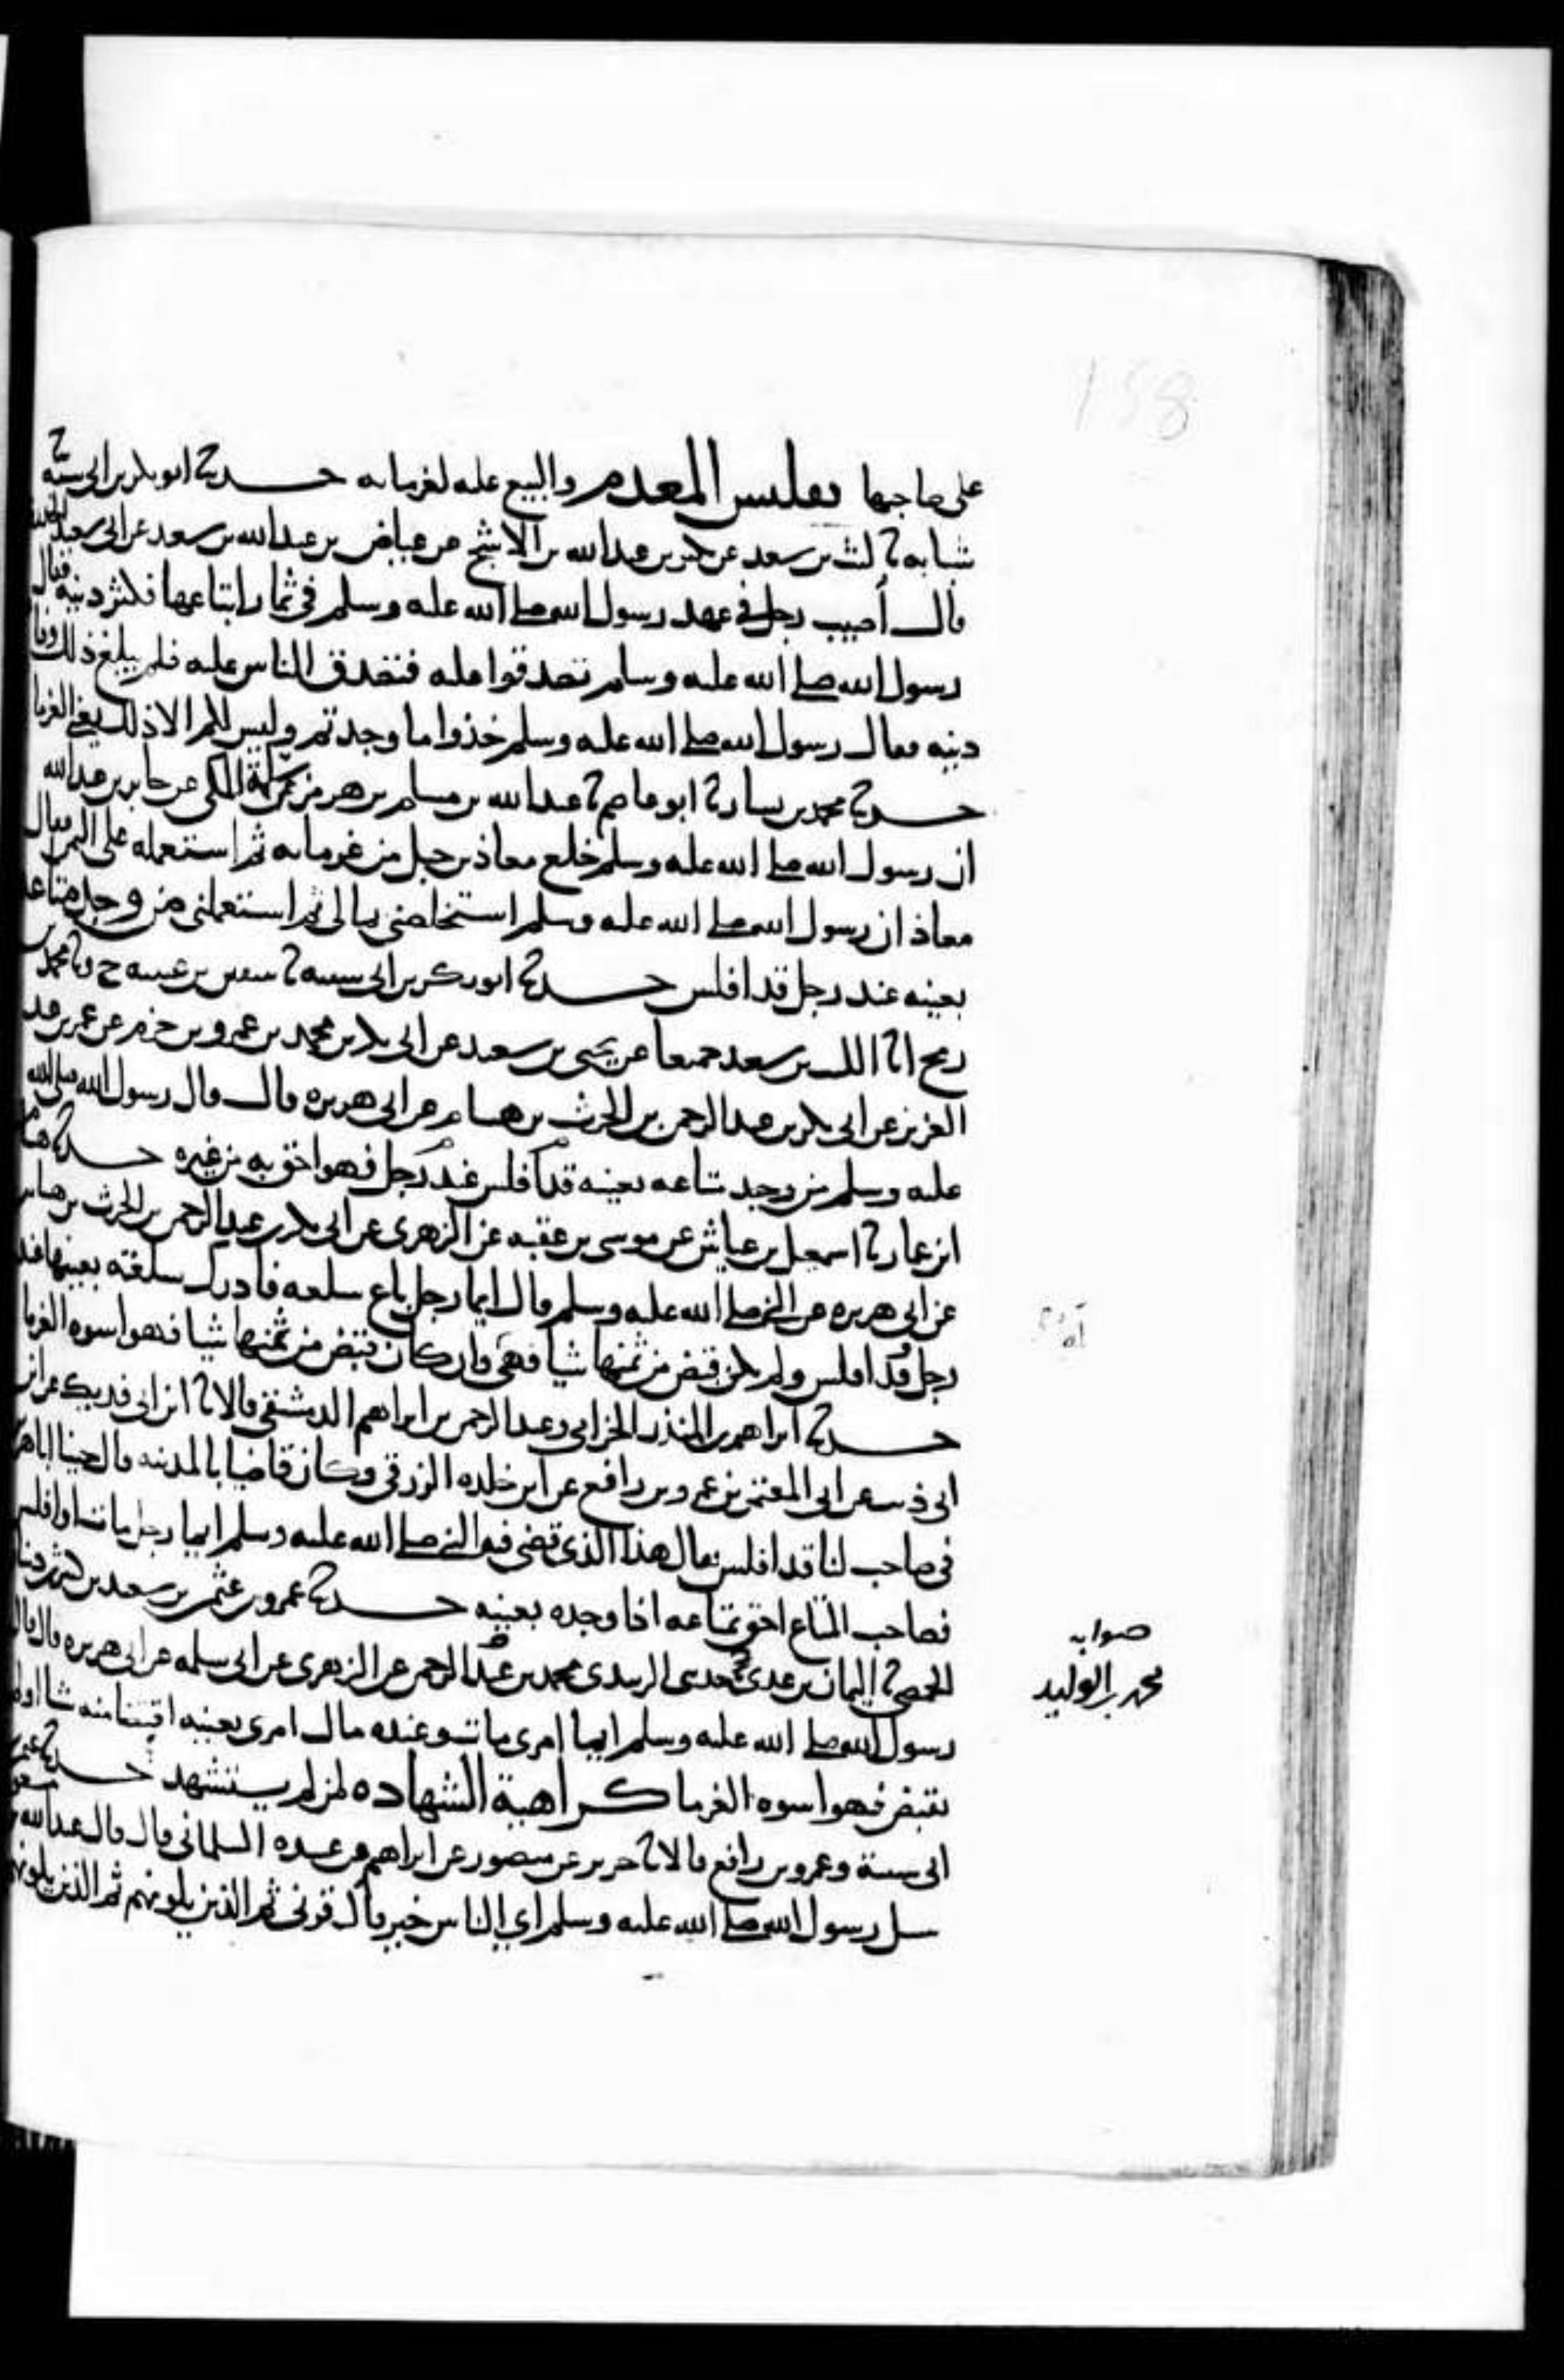 158
على صاحبها تفليس المعدم والبيع عليه لغرمائه حدثنا ابو بكر بن ابي شيبة
شبابة ثنا ليث بن سعد عن بكير بن عبد الله بن الاشج عن عياض بن عبد الله بن سعد عن ابي سعيد الخدري
قال أصيب رجل في عهد رسول الله صلى الله عليه وسلم في ثمار ابتاعها فكثر دينه فقال
رسول الله صلى الله عليه وسلم تصدقوا عليه فتصدق الناس عليه فلم يبلغ ذلك وفا
دينه فقال رسول الله صلى الله عليه وسلم خذوا ما وجدتم وليس لكم الا ذلك يعني الغرما
حدثنا محمد بن بشار ثنا ابو عاصم ثنا عبد الله بن مسلم بن هرمز عن سلمة المكي عن جابر بن عبد الله
ان رسول الله صلى الله عليه وسلم خلع معاذ بن جبل من غرمائه ثم استعمله على اليمن فقال
معاذ ان رسول الله صلى الله عليه وسلم استخلصني بمالي ثم استعملني من وجد متاعه
بعينه عند رجل قد افلس حدثنا ابو بكر بن ابي شيبة ثنا سفين بن عيينة ح وثنا محمد بن
رمح انا الليث بن سعد جميعا عن يحيى بن سعيد عن ابي بكر بن محمد بن عمرو بن حزم عن عمر بن عبد
العزيز عن ابي بكر بن عبد الرحمن بن الحرث بن هشام عن ابي هريرة قال قال رسول الله صلى الله
عليه وسلم من وجد متاعه بعينه قد افلس عند رجل فهو احق به من غيره حدثنا هشام
ابن عمار ثنا اسمعيل بن عياش عن موسى بن عقبة عن الزهري عن ابي بكر بن عبد الرحمن بن الحرث بن هشام
عن ابي هريرة عن النبي صلى الله عليه وسلم قال ايما رجل باع سلعة فادرك سلعته بعينها عند
رجل وقد افلس ولم يكن قبض من ثمنها شيا فهي وان كان قبض من ثمنها شيا فهو اسوة الغرما
حدثنا ابراهيم بن المنذر الحزامي وعبد الرحمن بن ابراهيم الدمشقي قالا ثنا ابن ابي فديك عن ابن
ابي ذيب عن ابي المعتمر بن عمرو بن رافع عن ابن خلدة الزرقي وكان قاضيا بالمدينة قال جينا ابا هريرة
في صاحب لنا قد افلس فقال هذا الذي قضى فيه النبي صلى الله عليه وسلم ايما رجل مات او افلس
فصاحب المتاع احق بمتاعه اذا وجده بعينه حدثنا عمرو بن عثمن بن سعيد بن كثير بن دينار
الحمصي ثنا اليمان بن عدي حدثني الزبيدي محمد بن عبد الرحمن عن الزهري عن ابي سلمة عن ابي هريرة قال قال
رسول الله صلى الله عليه وسلم ايما امري مات وعنده مال امري بعينه اقتضا منه شيا او لم
يقتض فهو اسوة الغرما كراهية الشهادة لمن لم يستشهد حدثنا عثمن بن
ابي شيبة وعمرو بن رافع قالا ثنا جرير عن منصور عن ابراهيم عن عبيدة السلماني قال قال عبد الله بن مسعود
سيل رسول الله صلى الله عليه وسلم اي الناس خير قال قرني ثم الذين يلونهم ثم الذين يلونهم
صوابه
محمد بن الوليد